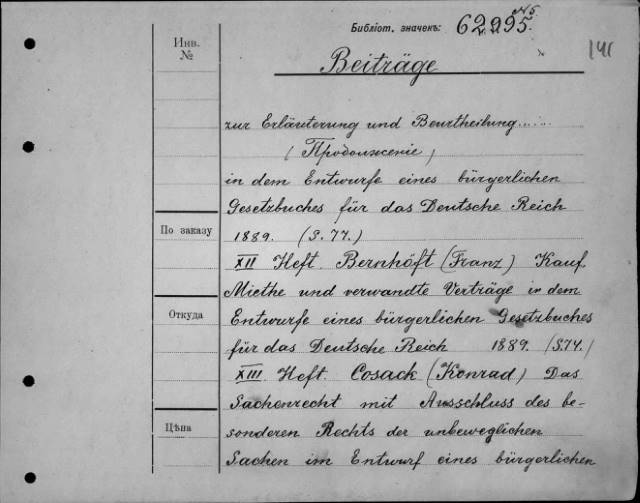 Библіот. значекъ: 62995.
№5
141
Инв. №
Beiträge
zur Erläuterung und Beurtheilung......
(Продолженіе)
in dem Entwurfe eines bürgerlichen
Gesetzbuches für das Deutsche Reich
По заказу
1889. (S. 77.)
XII Heft. Bernhöft (Franz) Kauf,
Miethe und verwandte Verträge in dem
Откуда
Entwurfe eines bürgerlichen Gesetzbuches
für das Deutsche Reich 1889. (S.74.)
XIII Heft. Cosack (Konrad) Das
Sachenrecht mit Ausschluss des be-
Цѣна
sonderen Rechts der unbeweglichen
Sachen im Entwurf eines bürgerlichen